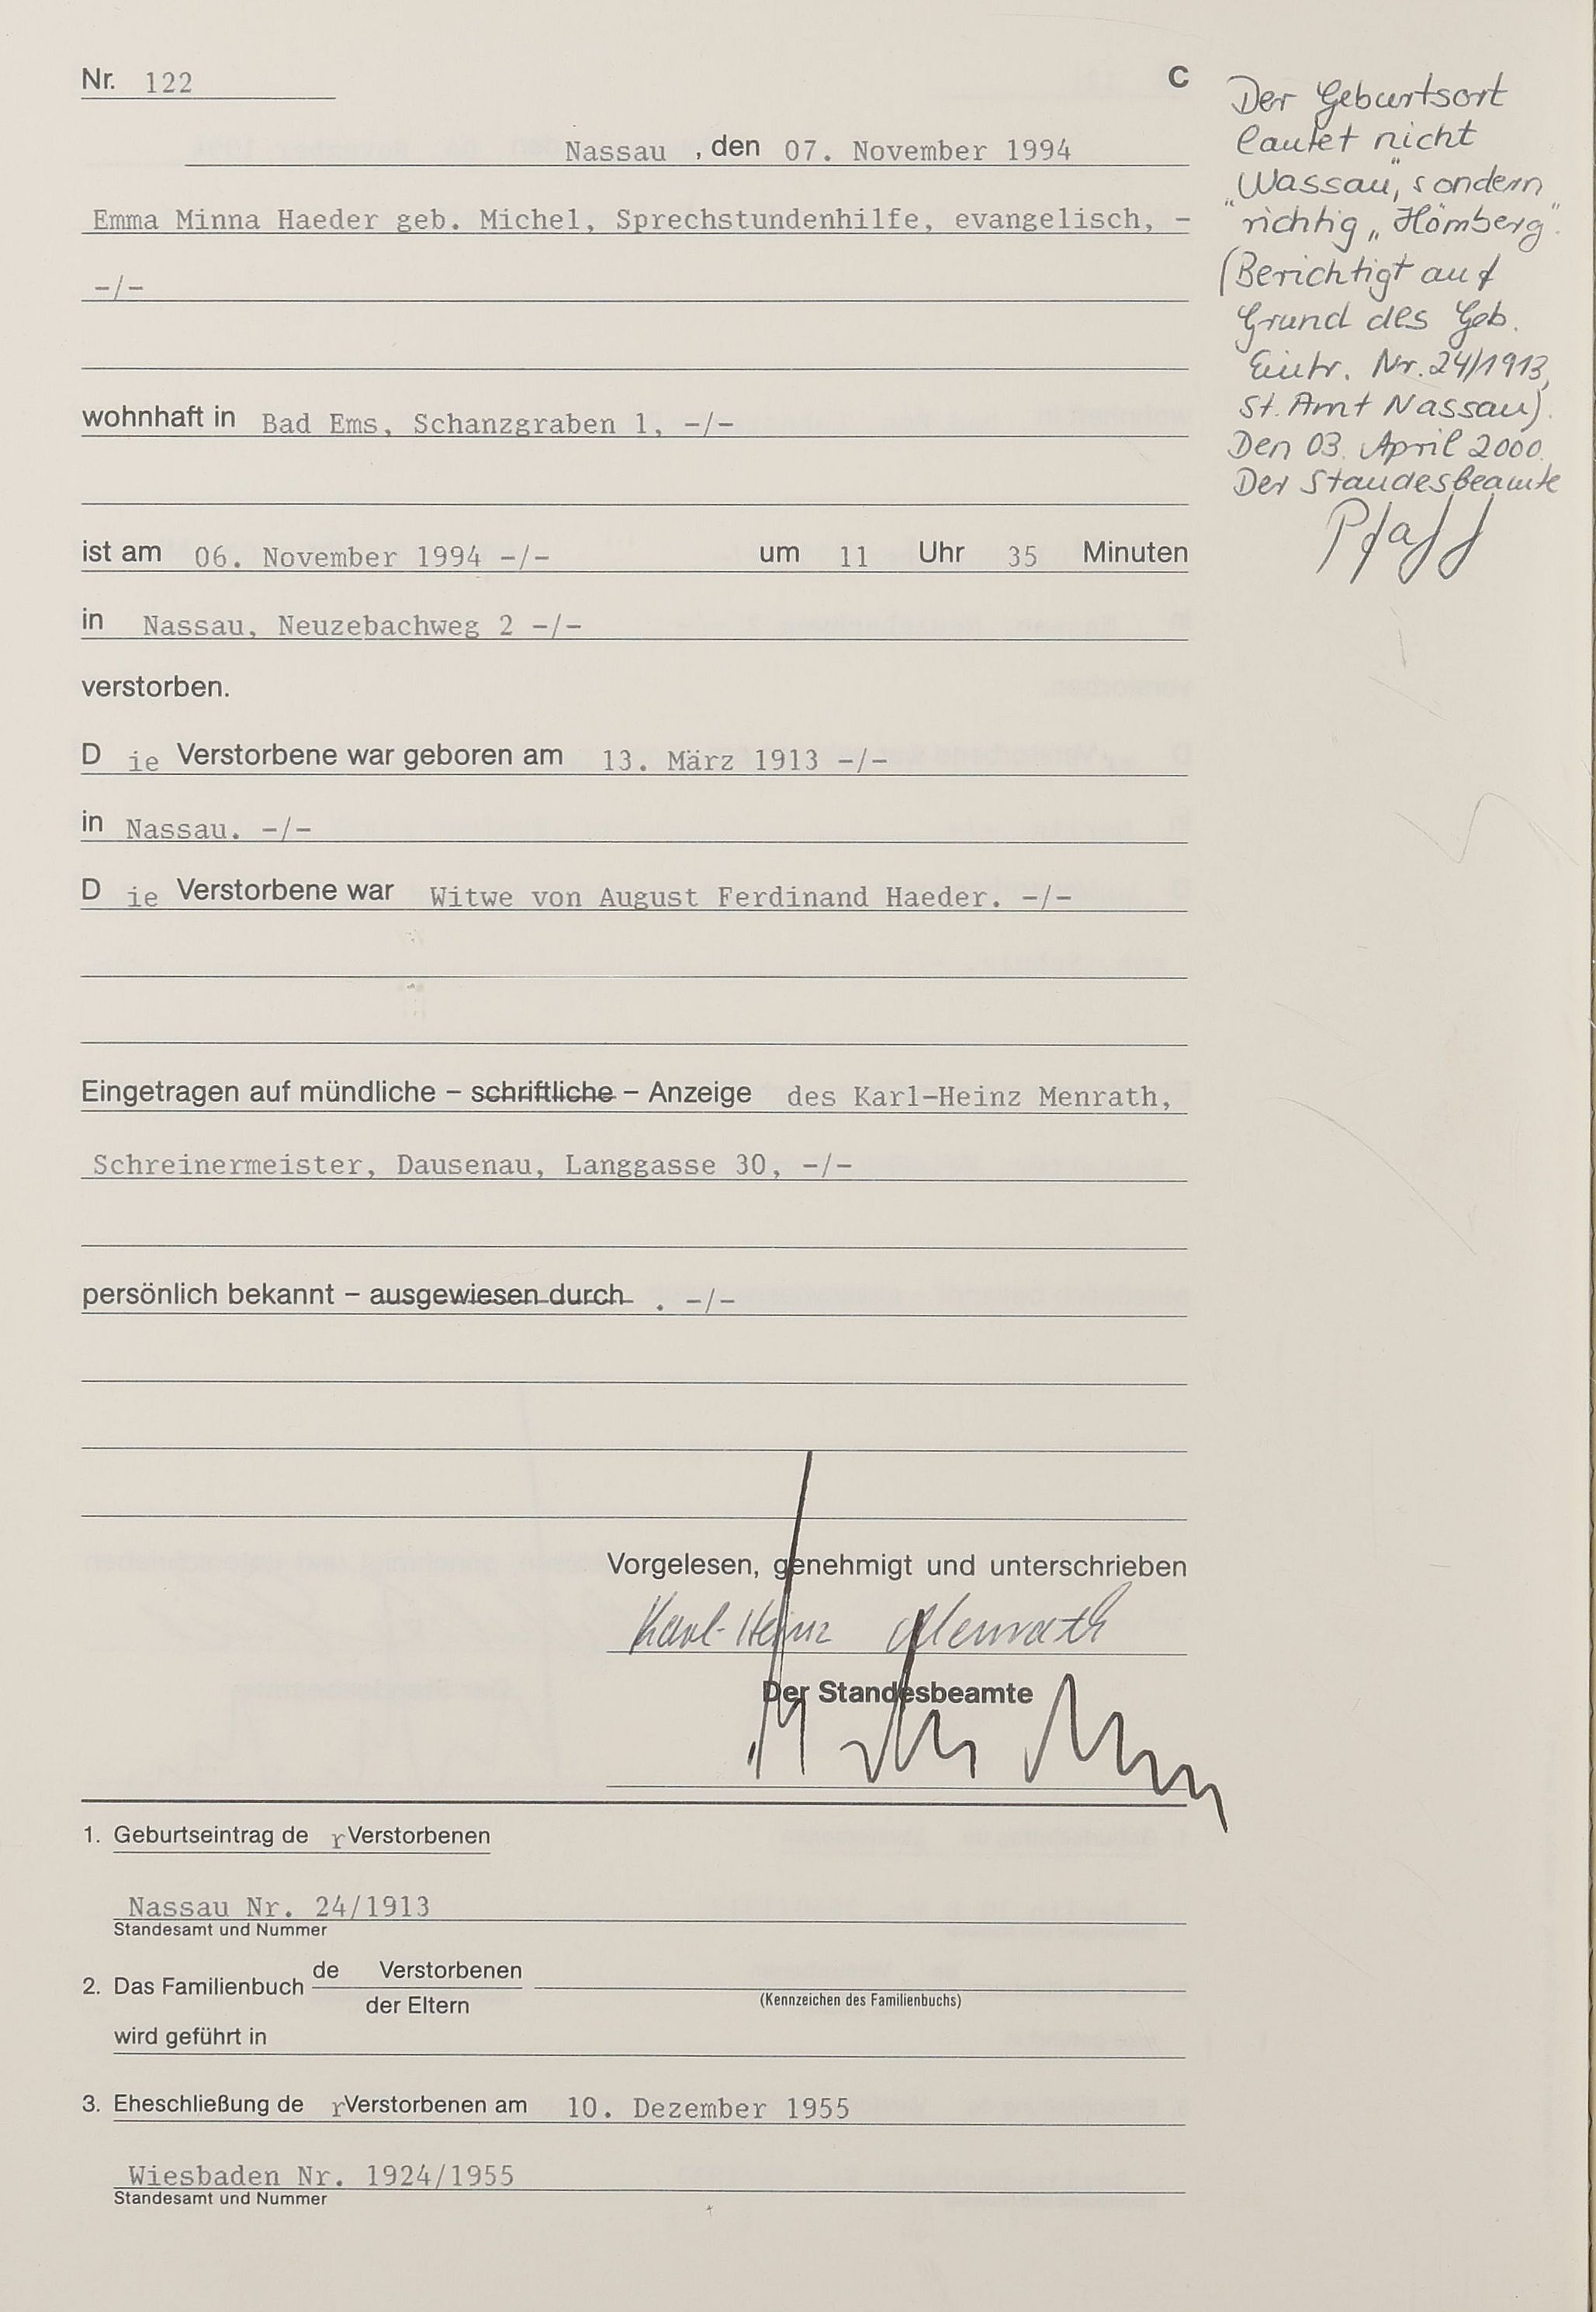 Nr. 122
C
Nassau , den 07. November 1994
Emma Minna Haeder geb. Michel, Sprechstundenhilfe, evangelisch, -
-/-
wohnhaft in Bad Ems, Schanzgraben 1, -/-
ist am 06. November 1994 -/- um 11 Uhr 35 Minuten
in Nassau, Neuzebachweg 2 -/-
verstorben.
D ie Verstorbene war geboren am 13. März 1913 -/-
in Nassau. -/-
D ie Verstorbene war Witwe von August Ferdinand Haeder. -/-
Eingetragen auf mündliche – schriftliche – Anzeige des Karl-Heinz Menrath,
Schreinermeister, Dausenau, Langgasse 30, -/-
persönlich bekannt – ausgewiesen durch . -/-
Vorgelesen, genehmigt und unterschrieben
Karl-Heinz Menrath
Der Standesbeamte
1. Geburtseintrag de r Verstorbenen
Nassau Nr. 24/1913
Standesamt und Nummer
2. Das Familienbuch de Verstorbenen
der Eltern
(Kennzeichen des Familienbuchs)
wird geführt in
3. Eheschließung de r Verstorbenen am 10. Dezember 1955
Wiesbaden Nr. 1924/1955
Standesamt und Nummer
Der Geburtsort
lautet nicht
"Wassau", sondern
richtig „Hömberg".
(Berichtigt auf
Grund des Geb.
Eintr. Nr. 24/1913,
St. Amt Nassau).
Den 03. April 2000.
Der Standesbeamte
Pfaff